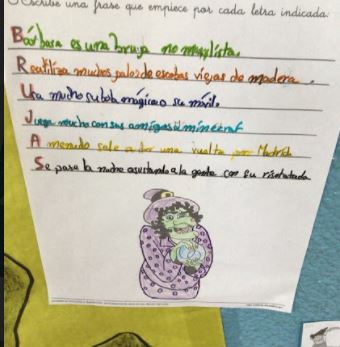 Escribe una frase que empiece por cada letra indicada:
Bárbara es una bruja no muy lista.
Reutiliza muchos palos de escobas viejas de madera.
Usa mucho su bola mágica o su móvil.
Juega mucho con sus amigas a minecraf
A menudo sale a dar una vuelta por Madrid
Se pasa la noche asustando a la gente con su risotada